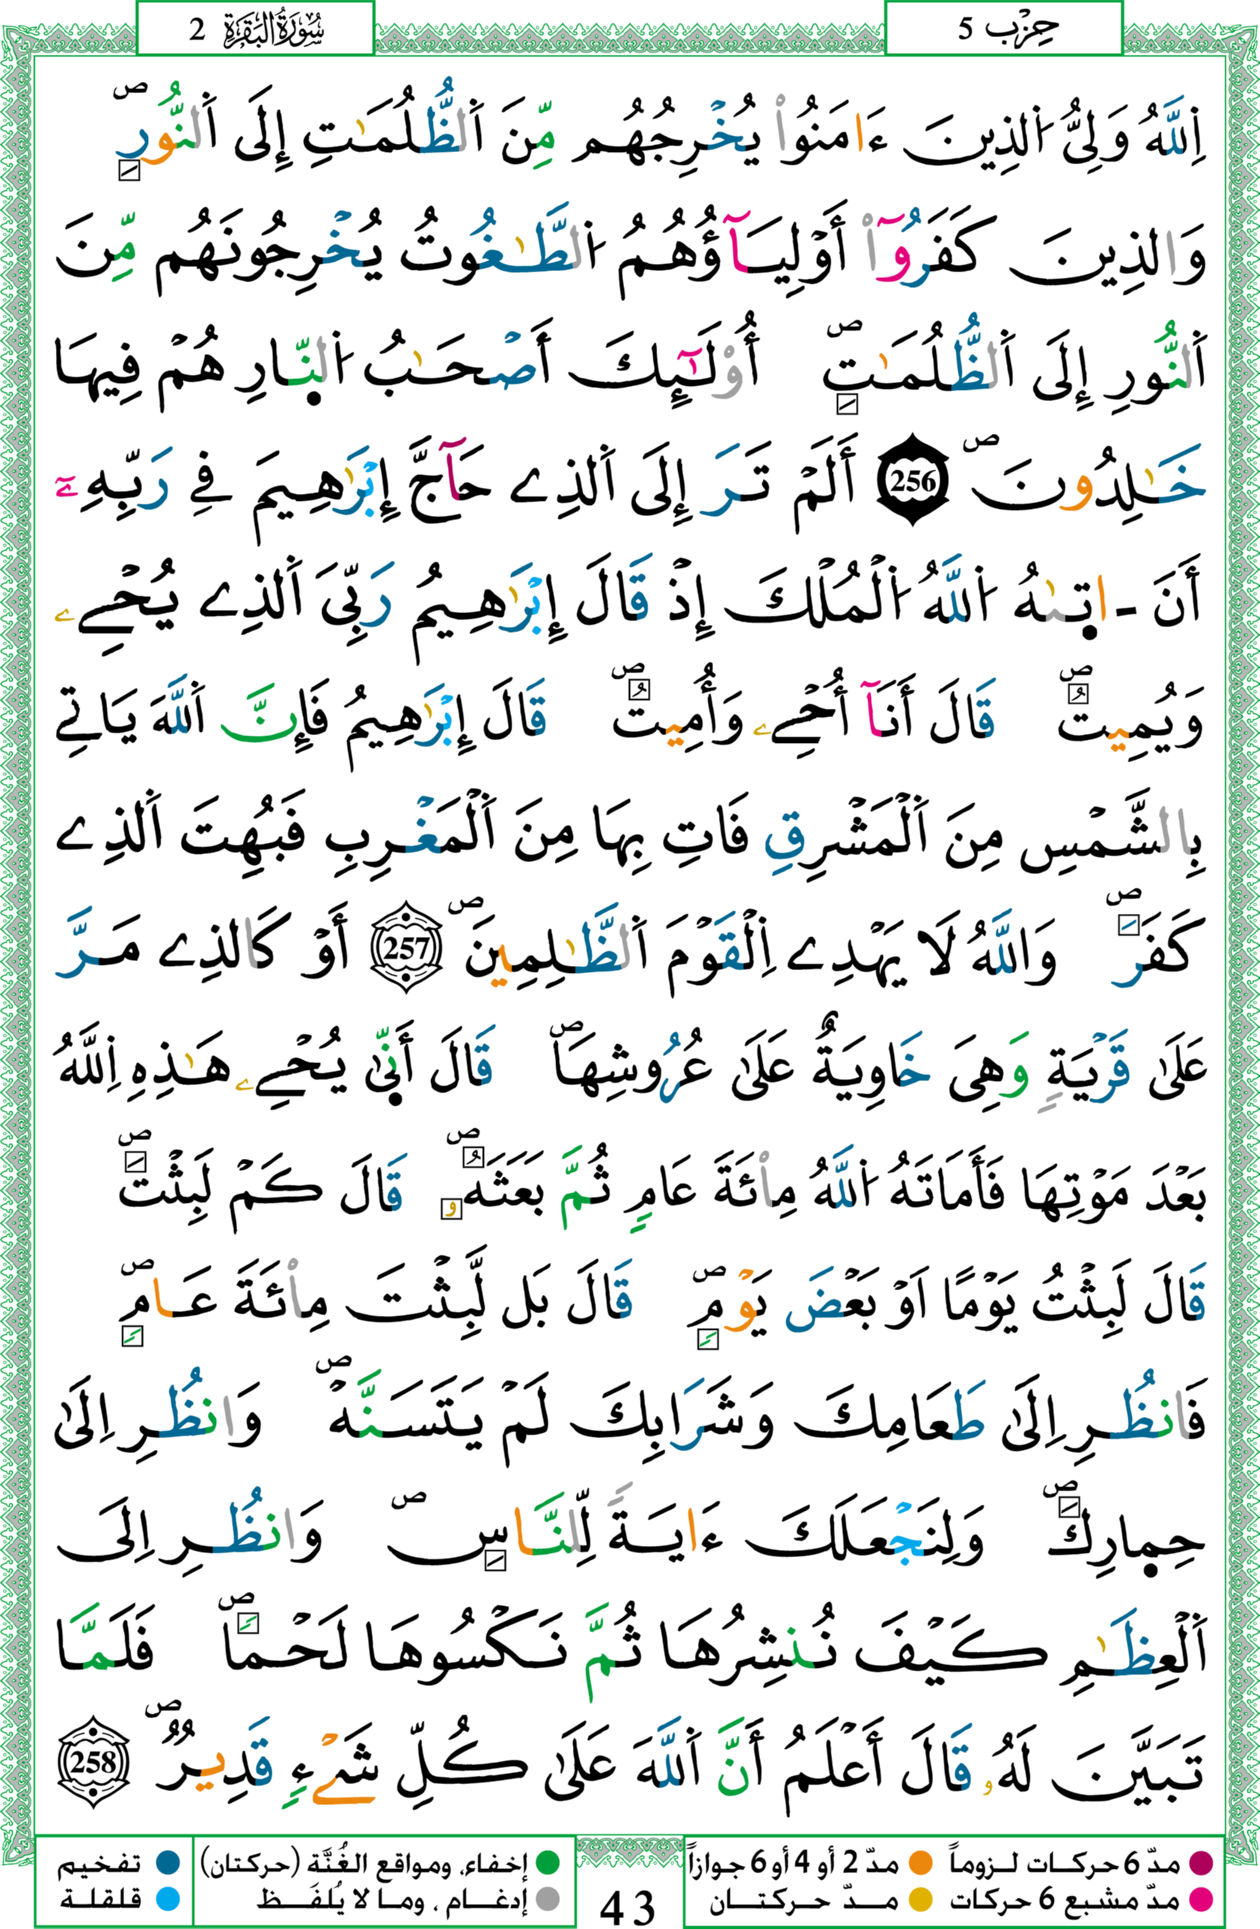 حِزْب 5
سُورَةُ البَقَرَةِ 2
اِ۬للَّهُ وَلِيُّ اُ۬لذِينَ ءَامَنُواْ يُخْرِجُهُم مِّنَ اَ۬لظُّلُمَٰتِ إِلَى اَ۬لنُّورِۖ
وَالذِينَ كَفَرُوٓاْ أَوْلِيَآؤُهُمُ اُ۬لطَّٰغُوتُ يُخْرِجُونَهُم مِّنَ
اَ۬لنُّورِ إِلَى اَ۬لظُّلُمَٰتِۖ أُوْلَٰٓئِكَ أَصْحَٰبُ اُ۬لنّ۪ارِ هُمْ فِيهَا
خَٰلِدُونَۖ 256 أَلَمْ تَرَ إِلَى اَ۬لذِے حَآجَّ إِبْرَٰهِيمَ فِے رَبِّهِۦٓ
أَنَ ـ ات۪ىٰهُ اُ۬للَّهُ اُ۬لْمُلْكَ إِذْ قَالَ إِبْرَٰهِيمُ رَبِّيَ اَ۬لذِے يُحْيِۦ
وَيُمِيتُۖ قَالَ أَنَآ أُحْيِۦ وَأُمِيتُۖ قَالَ إِبْرَٰهِيمُ فَإِنَّ اَ۬للَّهَ يَاتِے
بِالشَّمْسِ مِنَ اَ۬لْمَشْرِقِ فَاتِ بِهَا مِنَ اَ۬لْمَغْرِبِ فَبُهِتَ اَ۬لذِے
كَفَرَۖ وَاللَّهُ لَا يَهْدِے اِ۬لْقَوْمَ اَ۬لظَّٰلِمِينَۖ 257 أَوْ كَالذِے مَرَّ
عَلَىٰ قَرْيَةٖ وَهِيَ خَاوِيَةٌ عَلَىٰ عُرُوشِهَاۖ قَالَ أَنّ۪ىٰ يُحْيِۦ هَٰذِهِ اِ۬للَّهُ
بَعْدَ مَوْتِهَا فَأَمَاتَهُ اُ۬للَّهُ مِاْئَةَ عَامٖ ثُمَّ بَعَثَهُۥۖ قَالَ كَمْ لَبِثْتَۖ
قَالَ لَبِثْتُ يَوْماً اَوْ بَعْضَ يَوْمٖۖ قَالَ بَل لَّبِثْتَ مِاْئَةَ عَامٖۖ
فَانظُرِ اِلَىٰ طَعَامِكَ وَشَرَابِكَ لَمْ يَتَسَنَّهْۖ وَانظُرِ اِلَىٰ
حِم۪ارِكَۖ وَلِنَجْعَلَكَ ءَايَةً لِّلنَّاسِۖ وَانظُرِ اِلَى
اَ۬لْعِظَٰمِ كَيْفَ نُنشِرُهَا ثُمَّ نَكْسُوهَا لَحْماًۖ فَلَمَّا
تَبَيَّنَ لَهُۥ قَالَ أَعْلَمُ أَنَّ اَ۬للَّهَ عَلَىٰ كُلِّ شَےْءٖ قَدِيرٌۖ 258
مدّ 6 حركات لـزوماً مدّ 2 أو 4 أو 6 جوازاً
مدّ مشبع 6 حركات مـدّ حـركتــان
43
إخفاء، ومواقع الغُنَّة (حركتان) تفخيم
إدغــام ، ومـا لا يُلفَــظ قلقلة